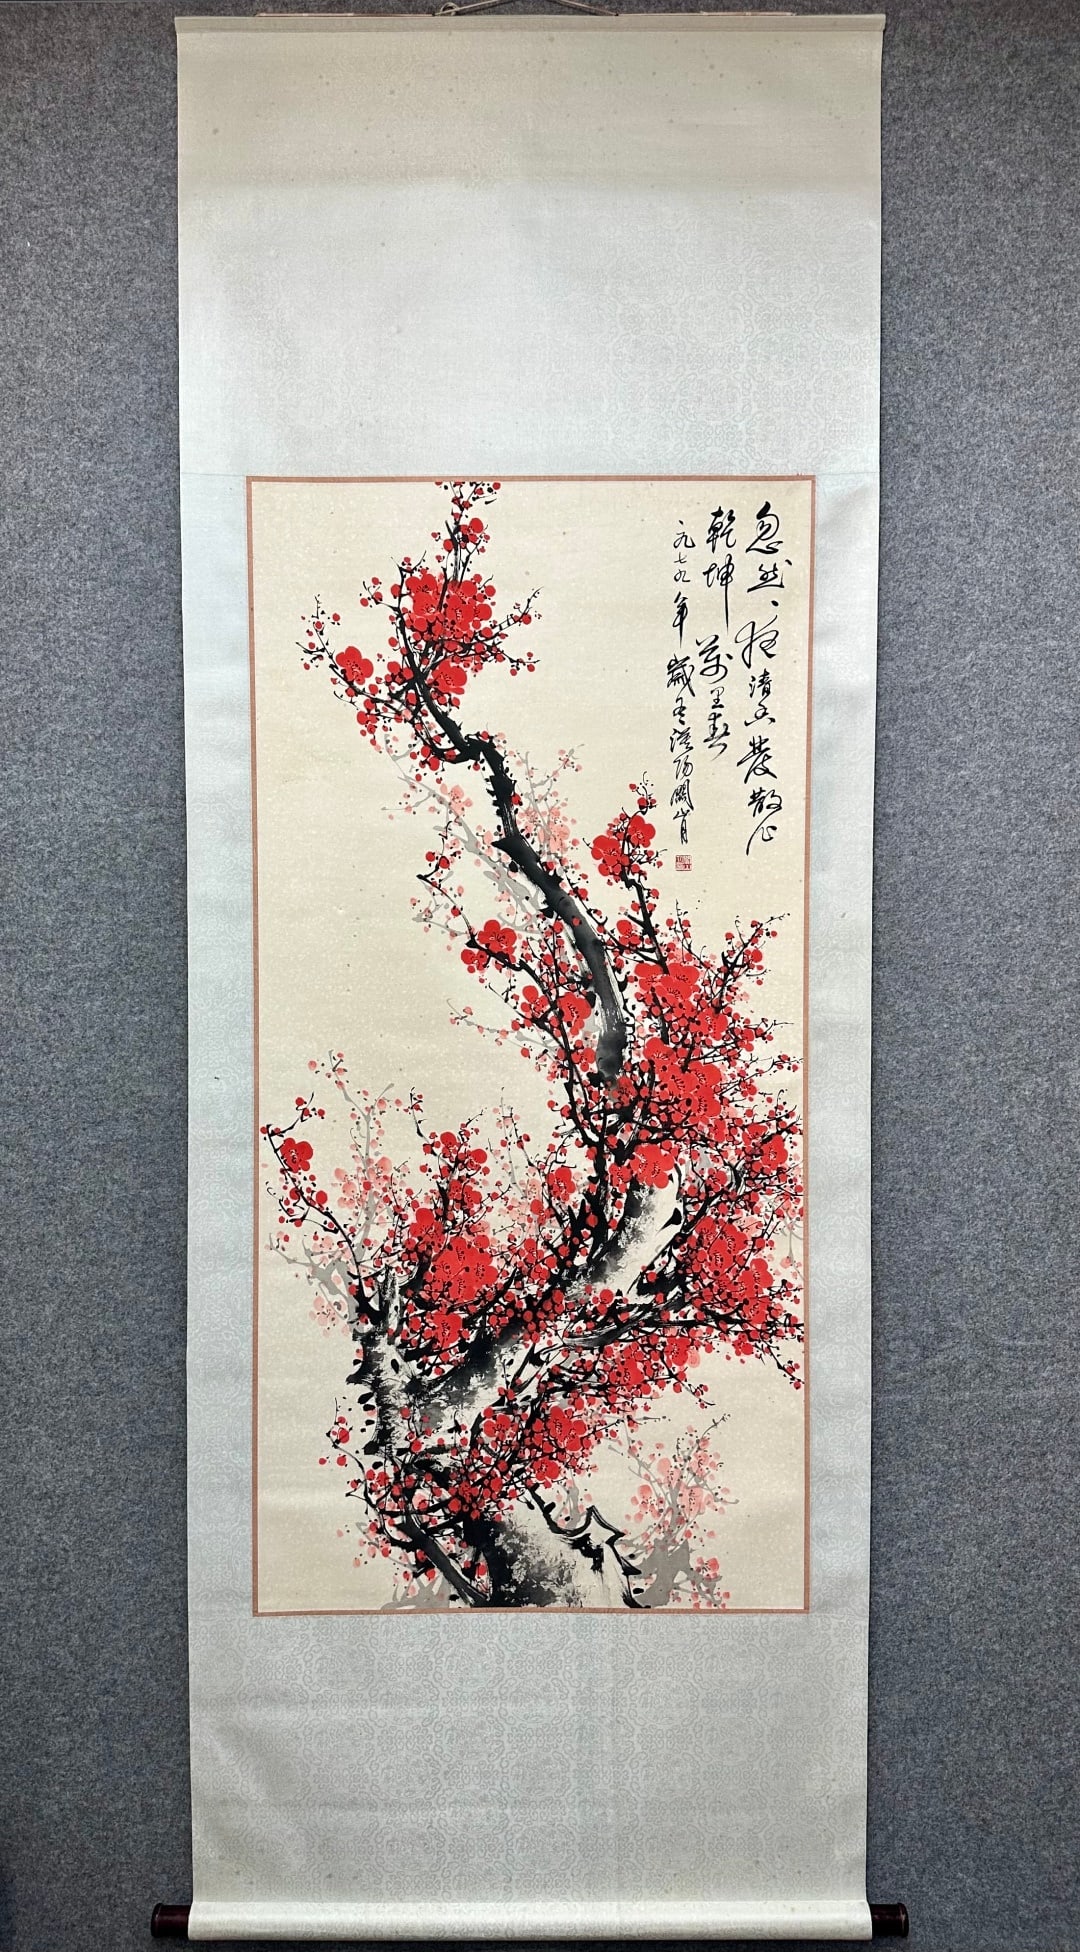 忽然一夜清香發散作
乾坤萬里春
一九七九年歲冬漠陽關山月